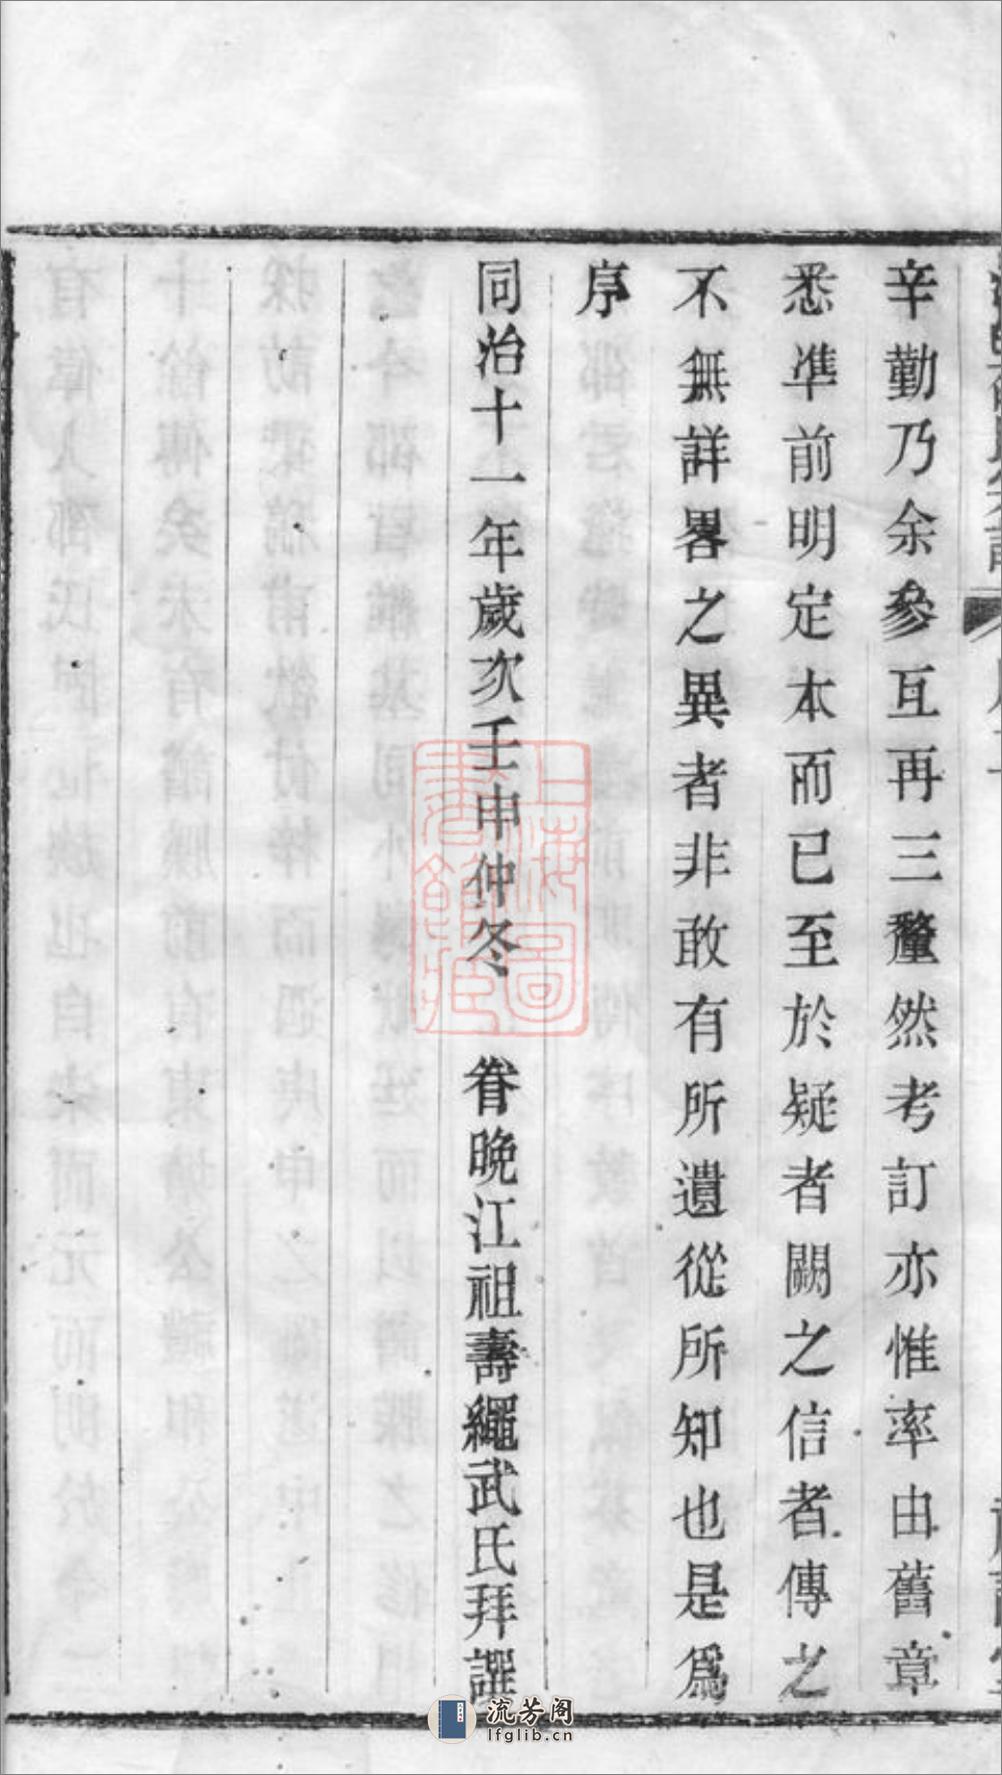 辛勤乃余參互再三釐然考訂亦惟率由舊章
悉準前明定本而已至於疑者闕之信者傳之
不無詳畧之異者非敢有所遺從所知也是爲
序
同治十一年歲次壬申仲冬 眷晚江祖壽繩武氏拜譔
上海圖書館藏
流芳阁
lfglib.cn